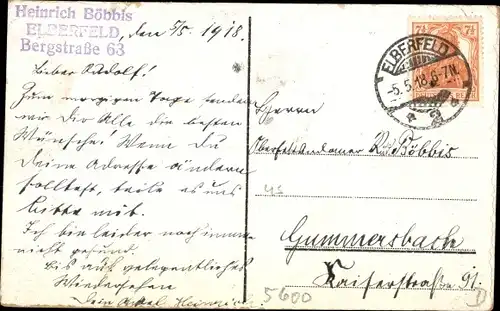 Heinrich Böbbis
ELBERFELD,
Bergstraße 63
den 5/5. 1918.
Lieber Rudolf!
Zum morgigen Tage senden
wir Dir Alle die besten
Wünsche! Wenn Du
Deine Adresse ändern
solltest, teile es uns
bitte mit.
Ich bin leider noch immer
nicht gesund.
Bis auf gelegentliches
Wiedersehen
Dein Heinrich
7½ 7½
ELBERFELD
-5.5.18.6-7N.
Herrn
Rud. Böbbis
Gummersbach
Kaiserstraße 91.
5600